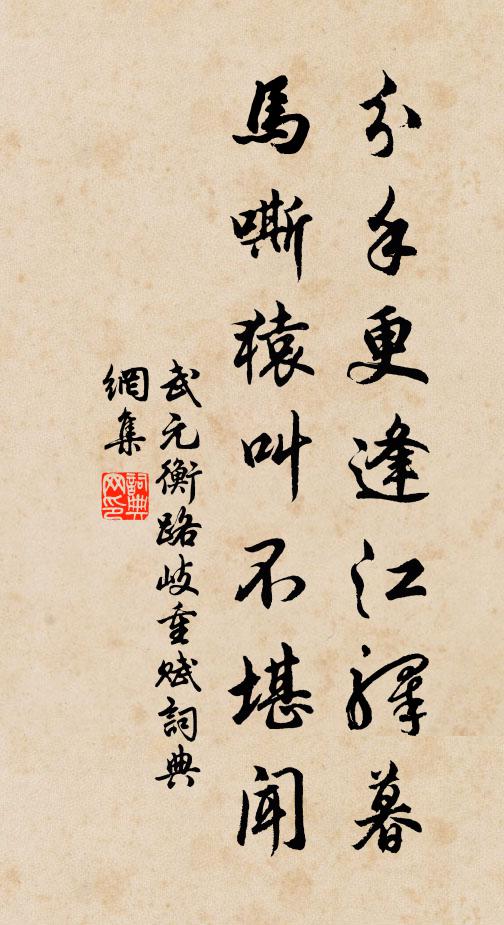 分手更逢江驛暮
馬嘶猿叫不堪聞
武元衡路歧重賦詞典
網集
詞典网印